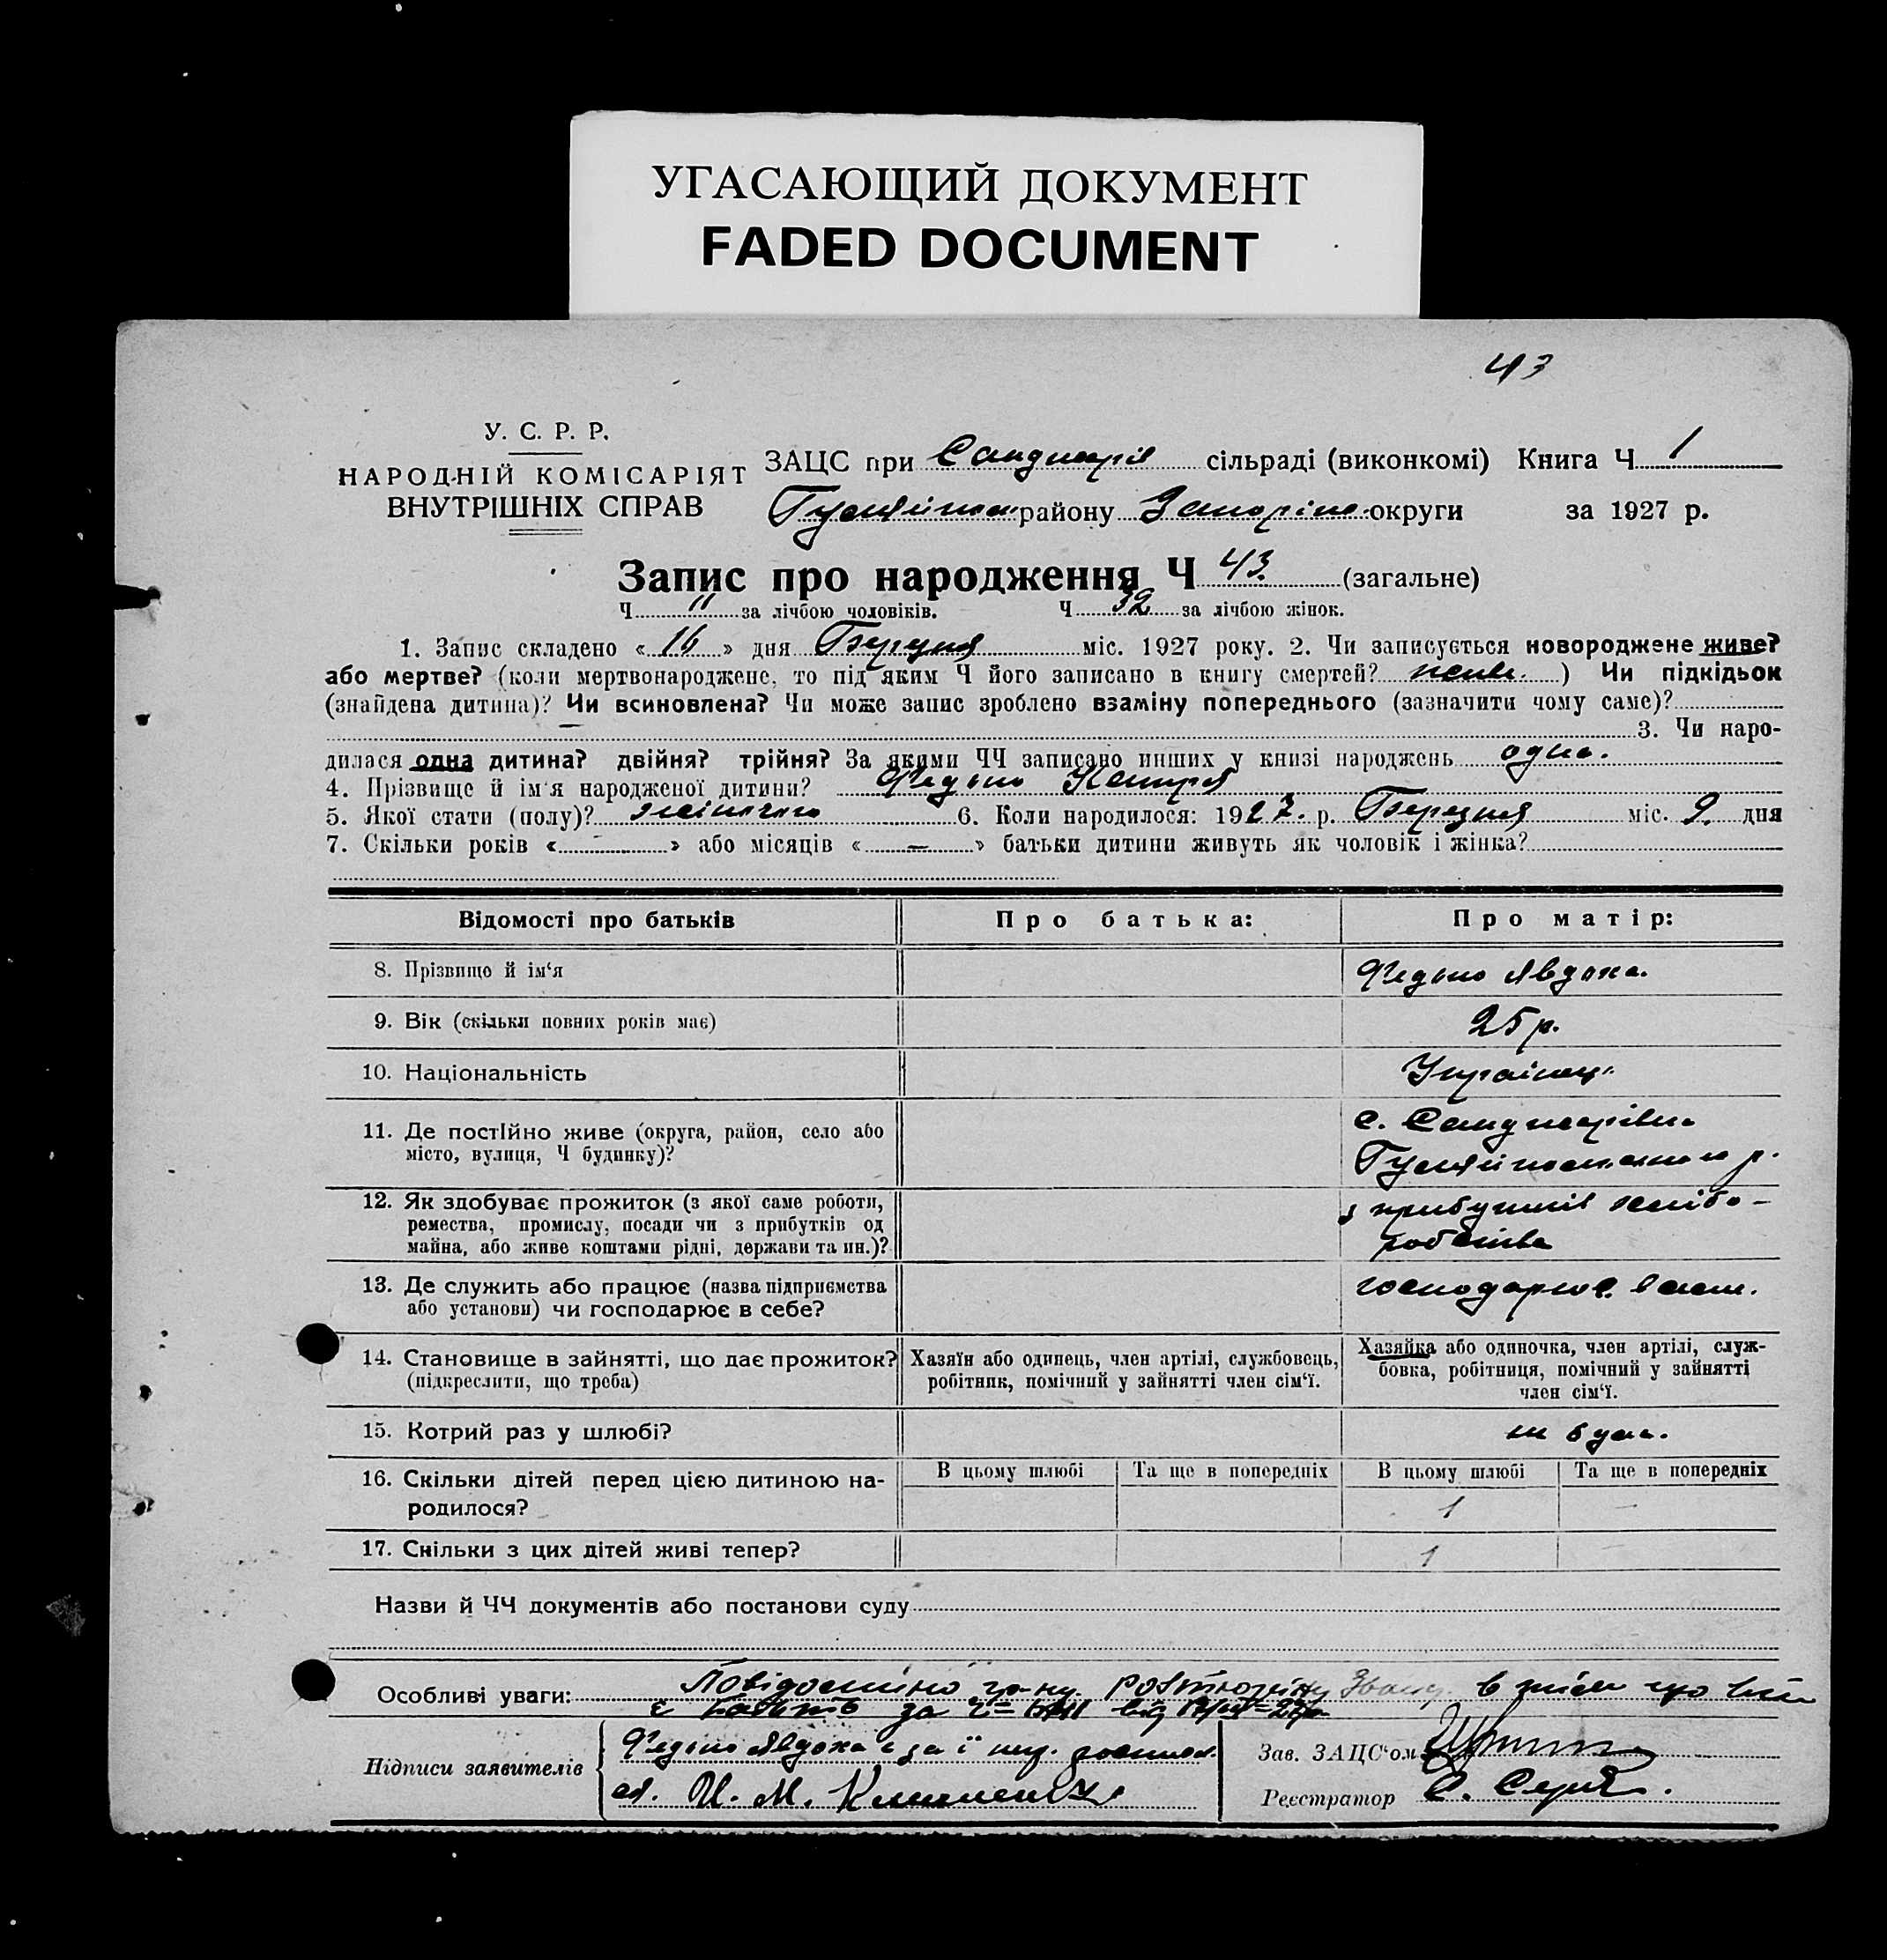 УГАСАЮЩИЙ ДОКУМЕНТ
FADED DOCUMENT
43
У. С. Р. Р.
НАРОДНІЙ КОМІСАРІЯТ
ВНУТРІШНІХ СПРАВ
ЗАЦС при сільраді (виконкомі) Книга Ч 1
району округи за 1927 р.
Запис про народження Ч 43 (загальне)
Ч 11 за лічбою чоловіків. Ч 32 за лічбою жінок.
1. Запис складено « 16 » дня Березня міс. 1927 року. 2. Чи записується новороджене живе?
або мертве? (коли мертвонароджене, то під яким Ч його записано в книгу смертей? живе ) Чи підкідьок
(знайдена дитина)? Чи всиновлена? Чи може запис зроблено взаміну попереднього (зазначити чому саме)?
3. Чи наро-
дилася одна дитина? двійня? трійня? За якими ЧЧ записано инших у книзі народжень одна.
4. Прізвище й ім'я народженої дитини? Федько
5. Якої стати (полу)? жіночого 6. Коли народилося: 1927. р. Березня міс. 9. дня
7. Скільки років « — » або місяців « — » батьки дитини живуть як чоловік і жінка?
Відомості про батьків Про батька: Про матір:
8. Прізвище й ім'я Федько Явдоха.
9. Вік (скільки повних років має) 25 р.
10. Національність Українец.
11. Де постійно живе (округа, район, село або
місто, вулиця, Ч будинку)?
с.
р.
12. Як здобуває прожиток (з якої саме роботи,
ремества, промислу, посади чи з прибутків од
майна, або живе коштами рідні, держави та ин.)?
з прибутків хлібо-
робства
13. Де служить або працює (назва підприємства
або установи) чи господарює в себе?
господарює в
14. Становище в зайнятті, що дає прожиток?
(підкреслити, що треба)
Хазяїн або одинець, член артілі, службовець,
робітник, помічний у зайнятті член сім'ї.
Хазяйка або одиночка, член артілі, служ-
бовка, робітниця, помічний у зайнятті
член сім'ї.
15. Котрий раз у шлюбі?
16. Скільки дітей перед цією дитиною на-
родилося?
В цьому шлюбі Та ще в попередніх В цьому шлюбі Та ще в попередніх
1 —
17. Скільки з цих дітей живі тепер? 1
Назви й ЧЧ документів або постанови суду
Особливі уваги: Повідомлено гр-ну в тім що він
є батько за Ч від
Підписи заявителів
Федько Явдоха а за її
И. М.
Зав. ЗАЦС'ом
Реєстратор